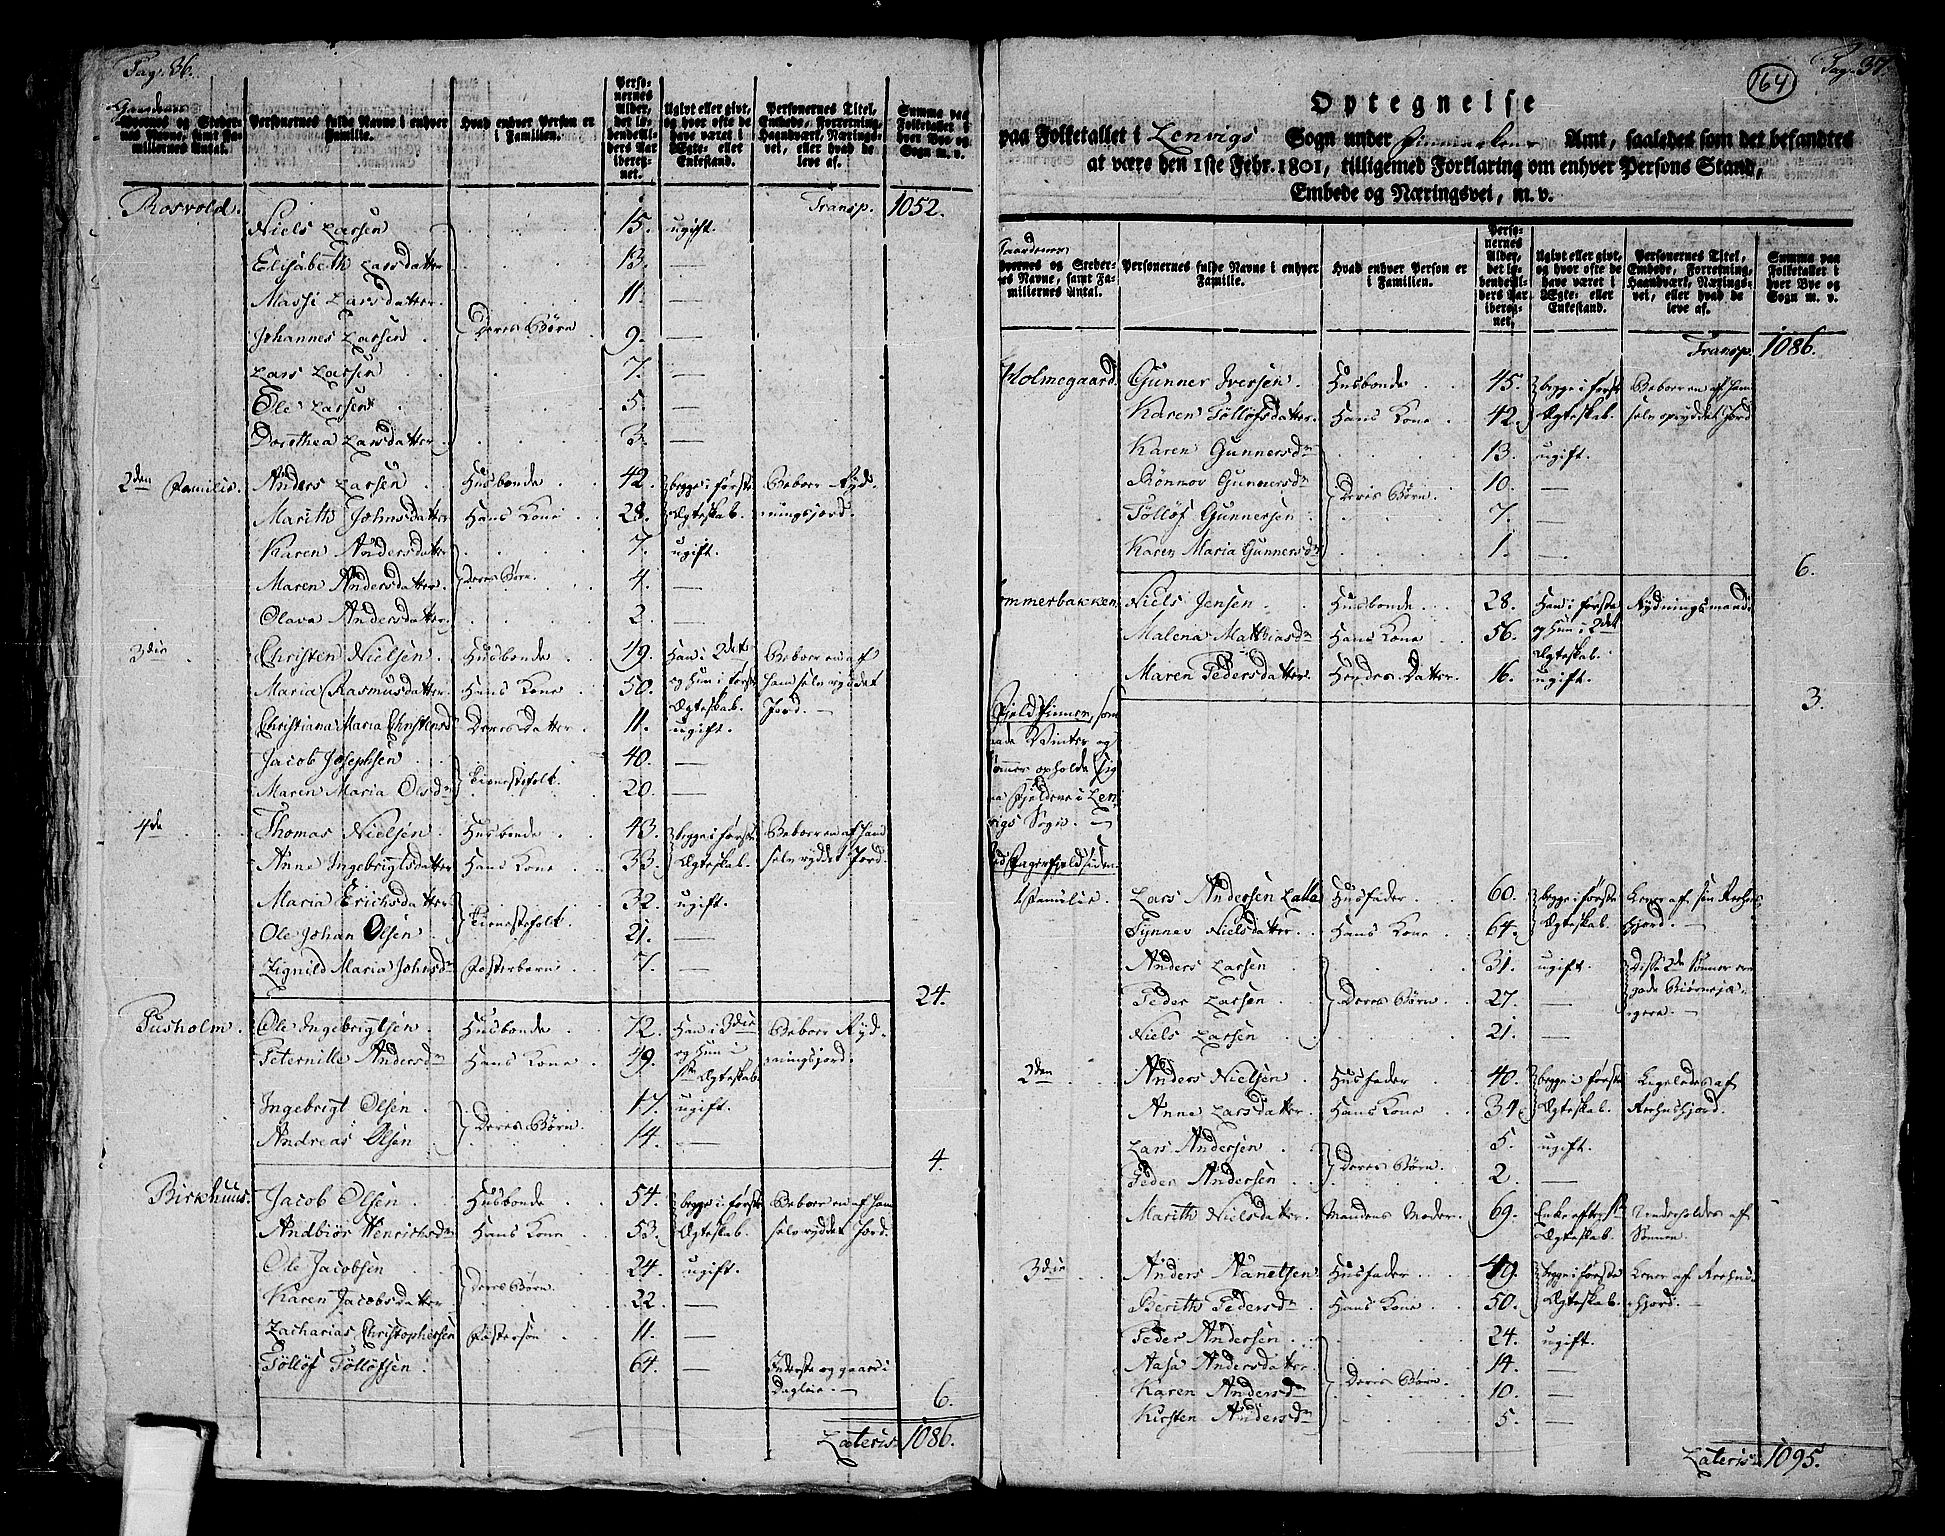 Pag. 36.
Gaardenes
Byernes og Steder-
nes Navne, samt Fa-
miliernes Antal.
Personernes fulde Navne i enhver
Familie.
Hvad enhver Person er
i Familien.
Perso-
nernes
Alder,
det lø-
bendeAl-
ders Aar
ibereg-
net.
Ugivt eller givt,
og hvor ofte de
have været i
Ægte- eller
Enkestand.
Personernes Titel,
Embede, Forretning,
Haandværk, Nærings-
vei, eller hvad de
leve af.
Summa paa
Folketallet i
hver Bye og
Sogn m. v.
Rosvold. Transp. 1052.
Niels Larsen 15. ugift.
Elisabeth Larsdatter 13. —
Massi Larsdatter 11. —
Johannes Larsen Deres Børn 9. —
Lars Larsen 7. —
Ole Larsen 5. —
Dorothea Larsdatter 3. —
2den Familie. Anders Larsen Husbonde 42. begge i første Beboer Ryd-
Marith Johnsdatter Hans Kone 28. Ægteskab. ningsjord.
Karen Andersdatter 7. ugift.
Maren Andersdatter Deres Børn. 4. —
Olava Andersdatter 2. —
3die Christen Nielsen Husbonde 49. Han i 2det Beboer en af
Maria Rasmusdatter Hans Kone 50. og Hun i første ham selv ryddet
Ægteskab. Jord. —
Christiana Maria Christensd Deres Datter 11. ugift.
Jacob Josephsen 40. —
Maren Maria Olsdr Tienestefolk. 20. —
4de Thomas Nielsen Husbonde 43. begge i første Beboer en af ham
Anne Ingebrigtsdatter Hans Kone 33. Ægteskab. selv ryddet Jord.
Maria Erichsdatter 32. ugift.
Ole Johan Olsen Tienestefolk 21. —
Zignild Maria Johnsdr Fosterbarn 7. —
24.
Pusholm. Ole Ingebrigtsen Husbonde 72. Han i 3die Beboer Ryd-
Peternille Andersdr Hans Kone 49. og Hun i ningsjord.
1ste Ægteskab.
Ingebrigt Olsen 17. ugift.
Andreas Olsen Deres Børn. 14. —
4.
Birkhuus. Jacob Olsen Husbonde 54. begge i første Beboer en af ham
Andbiør Henrichsdr Hans Kone 53. Ægteskab. selv ryddet Jord.
Ole Jacobsen 24. ugift.
Karen Jacobsdatter Deres Børn 22. —
Zacharias Christophersen Fostersøn 11. —
Tølløf Tølløfsen 64. — Inderste og gaaer i
Dagleie. —
6.
Lateris 1086.
164
Pag. 37.
Optegnelse
paa Folketallet i Lenvigs Sogn under Finmarkens Amt, saaledes som det befandtes
at være den 1ste Febr. 1801, tilligemed Forklaring om enhver Persons Stand,
Embede og Næringsvei, m. v.
Gaardenes
Byernes og Steder-
nes Navne, samt Fa-
miliernes Antal.
Personernes fulde Navne i enhver
Familie.
Hvad enhver Person er
i Familien.
Perso-
nernes
Alder,
det lø-
bendeAl-
ders Aar
ibereg-
net.
Ugivt eller givt,
og hvor ofte de
have været i
Ægte- eller
Enkestand.
Personernes Titel,
Embede, Forretning,
Haandværk, Nærings-
vei, eller hvad de
leve af.
Summa paa
Folketallet i
hver Bye og
Sogn m. v.
Transp. 1086.
Holmegaard. Gunner Iversen Husbonde 45. begge i første Beboer en af ham
Karen Tølløfsdatter Hans Kone 42. Ægteskab. selv opryddet Jord
Karen Gunnersdr 13. ugift.
Rønnov Gunnersdr Deres Børn 10. —
Tølløf Gunnersen 7. —
Karen Maria Gunnersdr 1. —
6.
ommerbakken Niels Jensen Husbonde 28. Han i første Rydningsmand
Malena Matthiasdr Hans Kone 56. og Hun i 2det
Ægteskab.
Maren Pedersdatter Hendes Datter 16. ugift.
3.
Fjeldfinner, som
baade Vinter og
Sommer opholde sig
paa Fjeldene i Len-
vigs Sogn. —
1 Familie. Lars Andersen Husfader 60. begge i første Lever af sin Reehns-
Synnev Nielsdatter Hans Kone 64. Ægteskab. hjord. —
Anders Larsen 31. ugift. Disse 2de Sønner ere
Peder Larsen Deres Børn 27. — gode Biørneskjæ-
Niels Larsen 21. —
2den Anders Nielsen Husfader 40. begge i første Ligeledes af
Anne Larsdatter Hans Kone 31. Ægteskab. Reehnshjord.
Lars Andersen 5. ugift.
Peder Andersen Deres Børn 2. —
Marith Nielsdatter Mandens Moder 69. Enke efter 1ste Underholdes af
Ægteskab. Sønnen
3die Anders Nanetsen Husfader 49. begge i første Lever af Reehns-
Berith Pedersdr Hans Kone 50. Ægteskab. hjord. —
Peder Andersen 24. ugift.
Aasa Andersdatter 14. —
Karen Andersdr Deres Børn 10. —
Kirsten Andersdr 5. —
Lateris 1095.